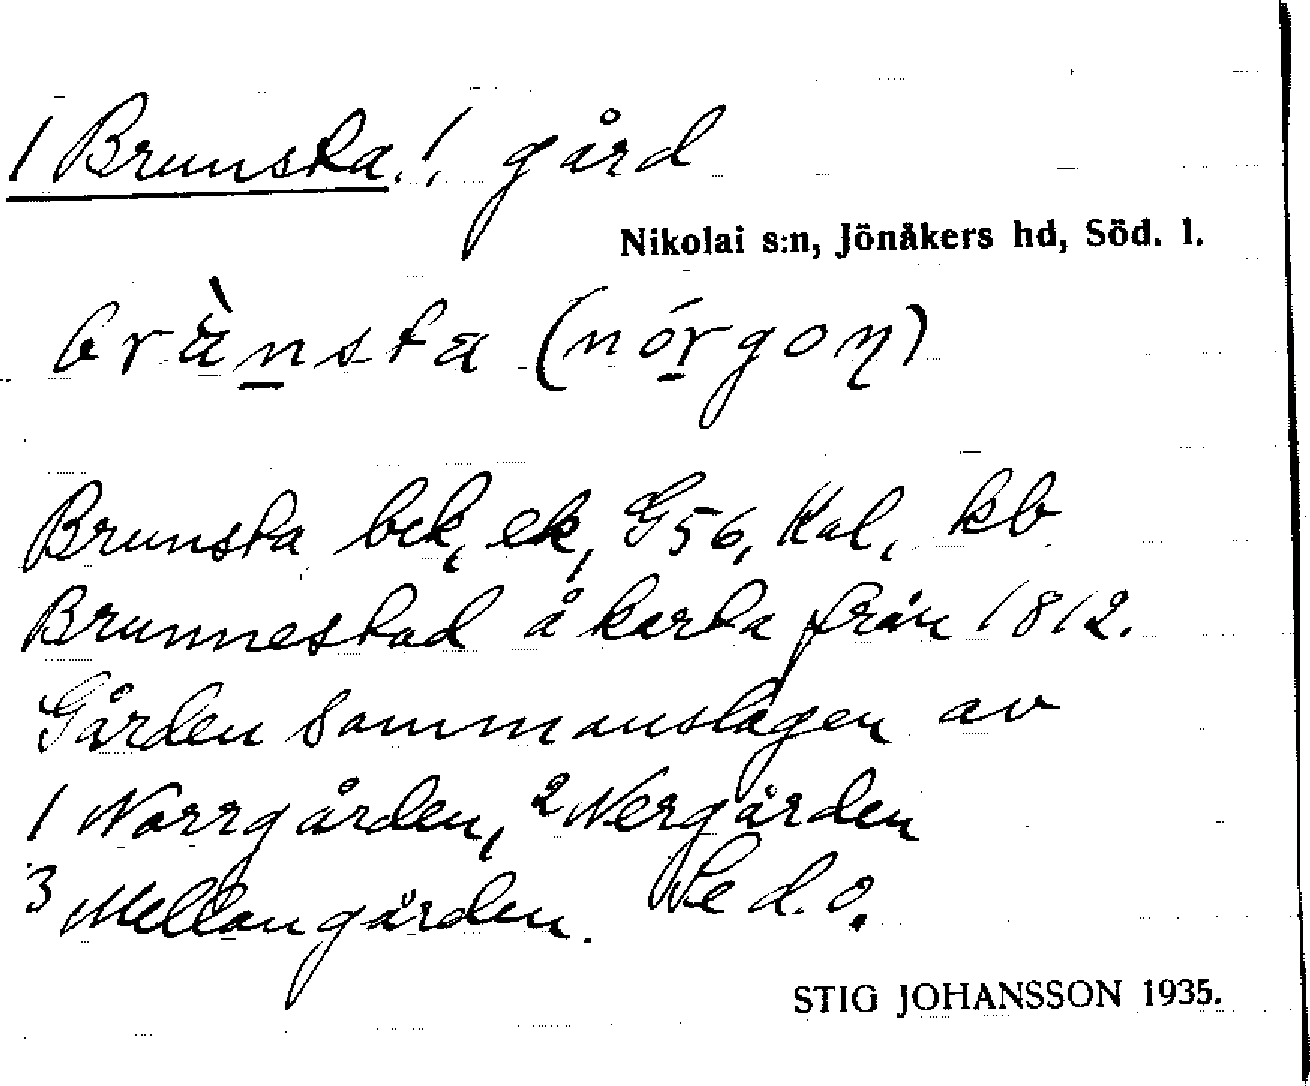 / Brunsta! gård
Nikolai s:n, Jönåkers hd, Söd. l.
(nórgon)
Brunsta bek, ek, G56, Kal, kb
Brunnestad å karta från 1812.
Gården sammanslagen av
1 Norrgården, 2 Nergården
3 Mellangården. Se d.o.
STIG JOHANSSON 1935.